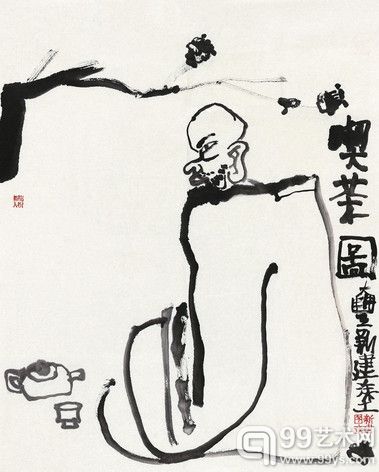 喫茶圖
大豐新建
99艺术网
www.99ys.com